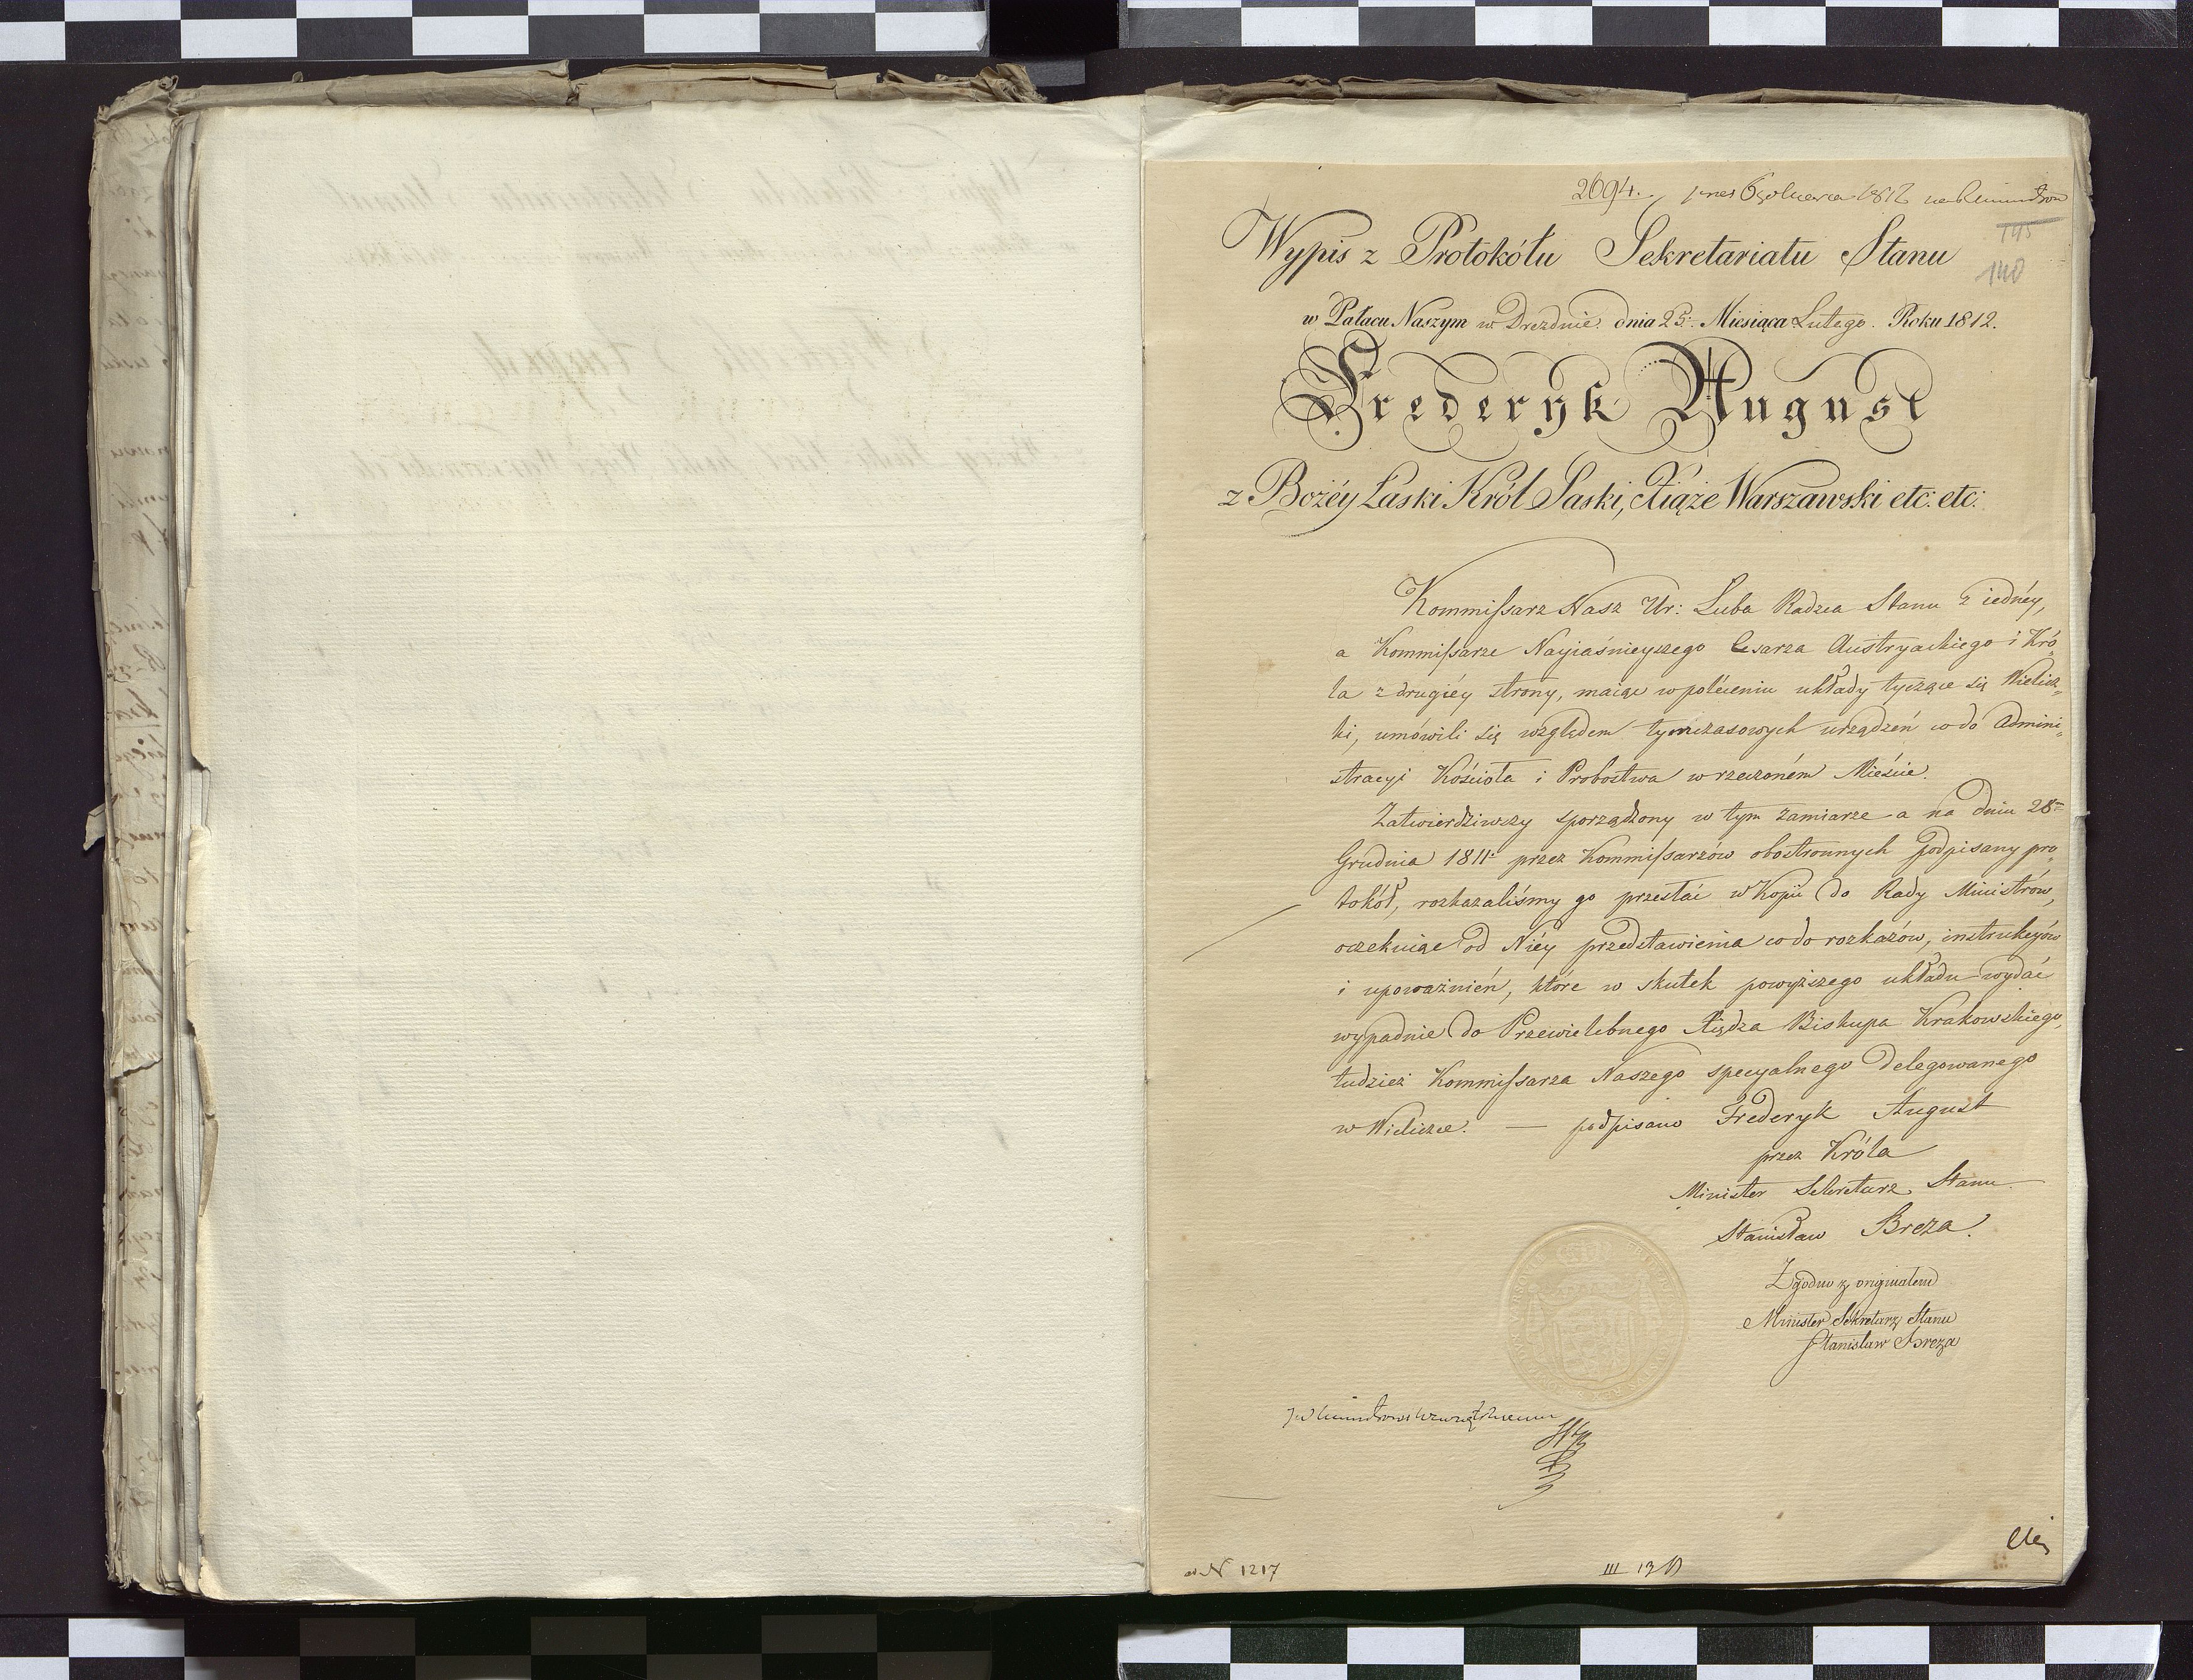 2694. pres 6 1812
145
140
Wypis z Protokółu Sekretariatu Stanu
w Pałacu Naszym w Dreznie. dnia 25: Miesiąca Lutego. Roku 1812.
Frederyk August
z Bożéy Łaski Król Saski, Xiąże Warszawski etc: etc:
Kommissarz Nasz Ur: Luba Radzca Stanu z iednéy,
a Kommissarze Nayiaśnieyszego Cesarza Austryackiego i Kró„
la z drugiéy strony, maiąc w poléceniu układy tyczące się Wielicz„
ki, umówili się względem tymczasowych urządzeń co do Admini„
stracyi Kościoła i Probostwa w rzeczoném Mieście.
Zatwierdziwszy sporządzony w tym zamiarze a na dniu 28
Grudnia 1811 przez Kommissarzów obostronnych podpisany pro„
tokół, rozkazaliśmy go przesłać w Kopii do Rady Ministrów,
oczekuiąc od Niéy przedstawienia co do rozkazów, instrukcyów
i upoważnień, które w skutek powyższego układu wydać
wypadnie do Przewielebnego Xiędza Biskupa Krakowskiego,
tudzież Kommissarza Naszego specyalnego delegowanego
w Wieliczce. — podpisano Frederyk August
przez Króla
Minister Sekretarz Stanu
Stanisław Breza.
Zgodno z originałem
Minister Sekretarz Stanu
Stanisław Breza
N 1217
III 13